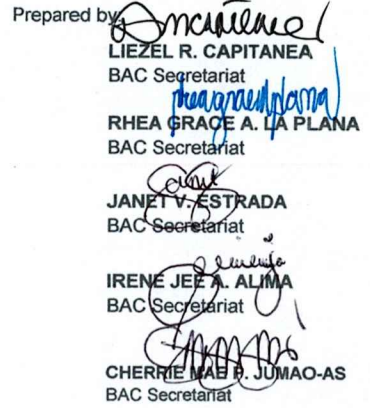 Prepared by
LIEZEL R. CAPITANEA
BAC Secretariat
RHEA GRACE A. LA PLANA
BAC Secretariat
JANET V. ESTRADA
BAC Secretariat
IRENE JEE A. ALIMA
BAC Secretariat
CHERRIE MAE P. JUMAO-AS
BAC Secretariat